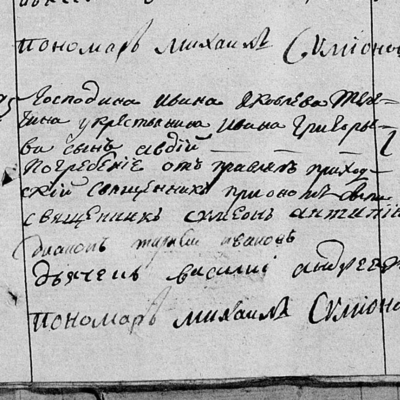 пономаръ михаилъ Сумионо
Господина ивина яковлева
шина у крестьянина ивана григорье
ва сынъ авдий
погребение отъправлялъ приход
ский священникъ при ономъ были
священникъ симеонъ антипи
диаконъ иванъ
дьячекъ василиi андрее
пономаръ михаилъ Сумионо